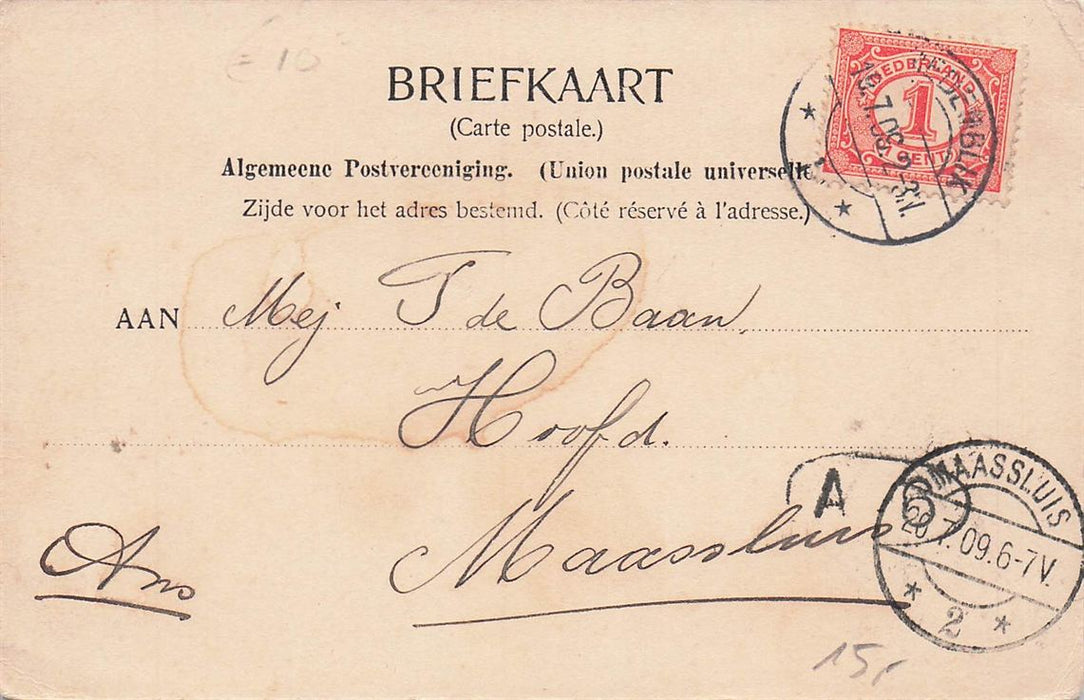 £ 10
BRIEFKAART
(Carte postale.)
Algemeene Postvereeniging. (Union postale universelle
Zijde voor het adres bestemd. (Côté réservé à l'adresse.)
NEDERLAND
1
CENT
AAN Mej T de Baan,
Hoofd.
Maassluis
Ans
A
6
MAASSLUIS
20 7. 09. 6-7V.
2
15,